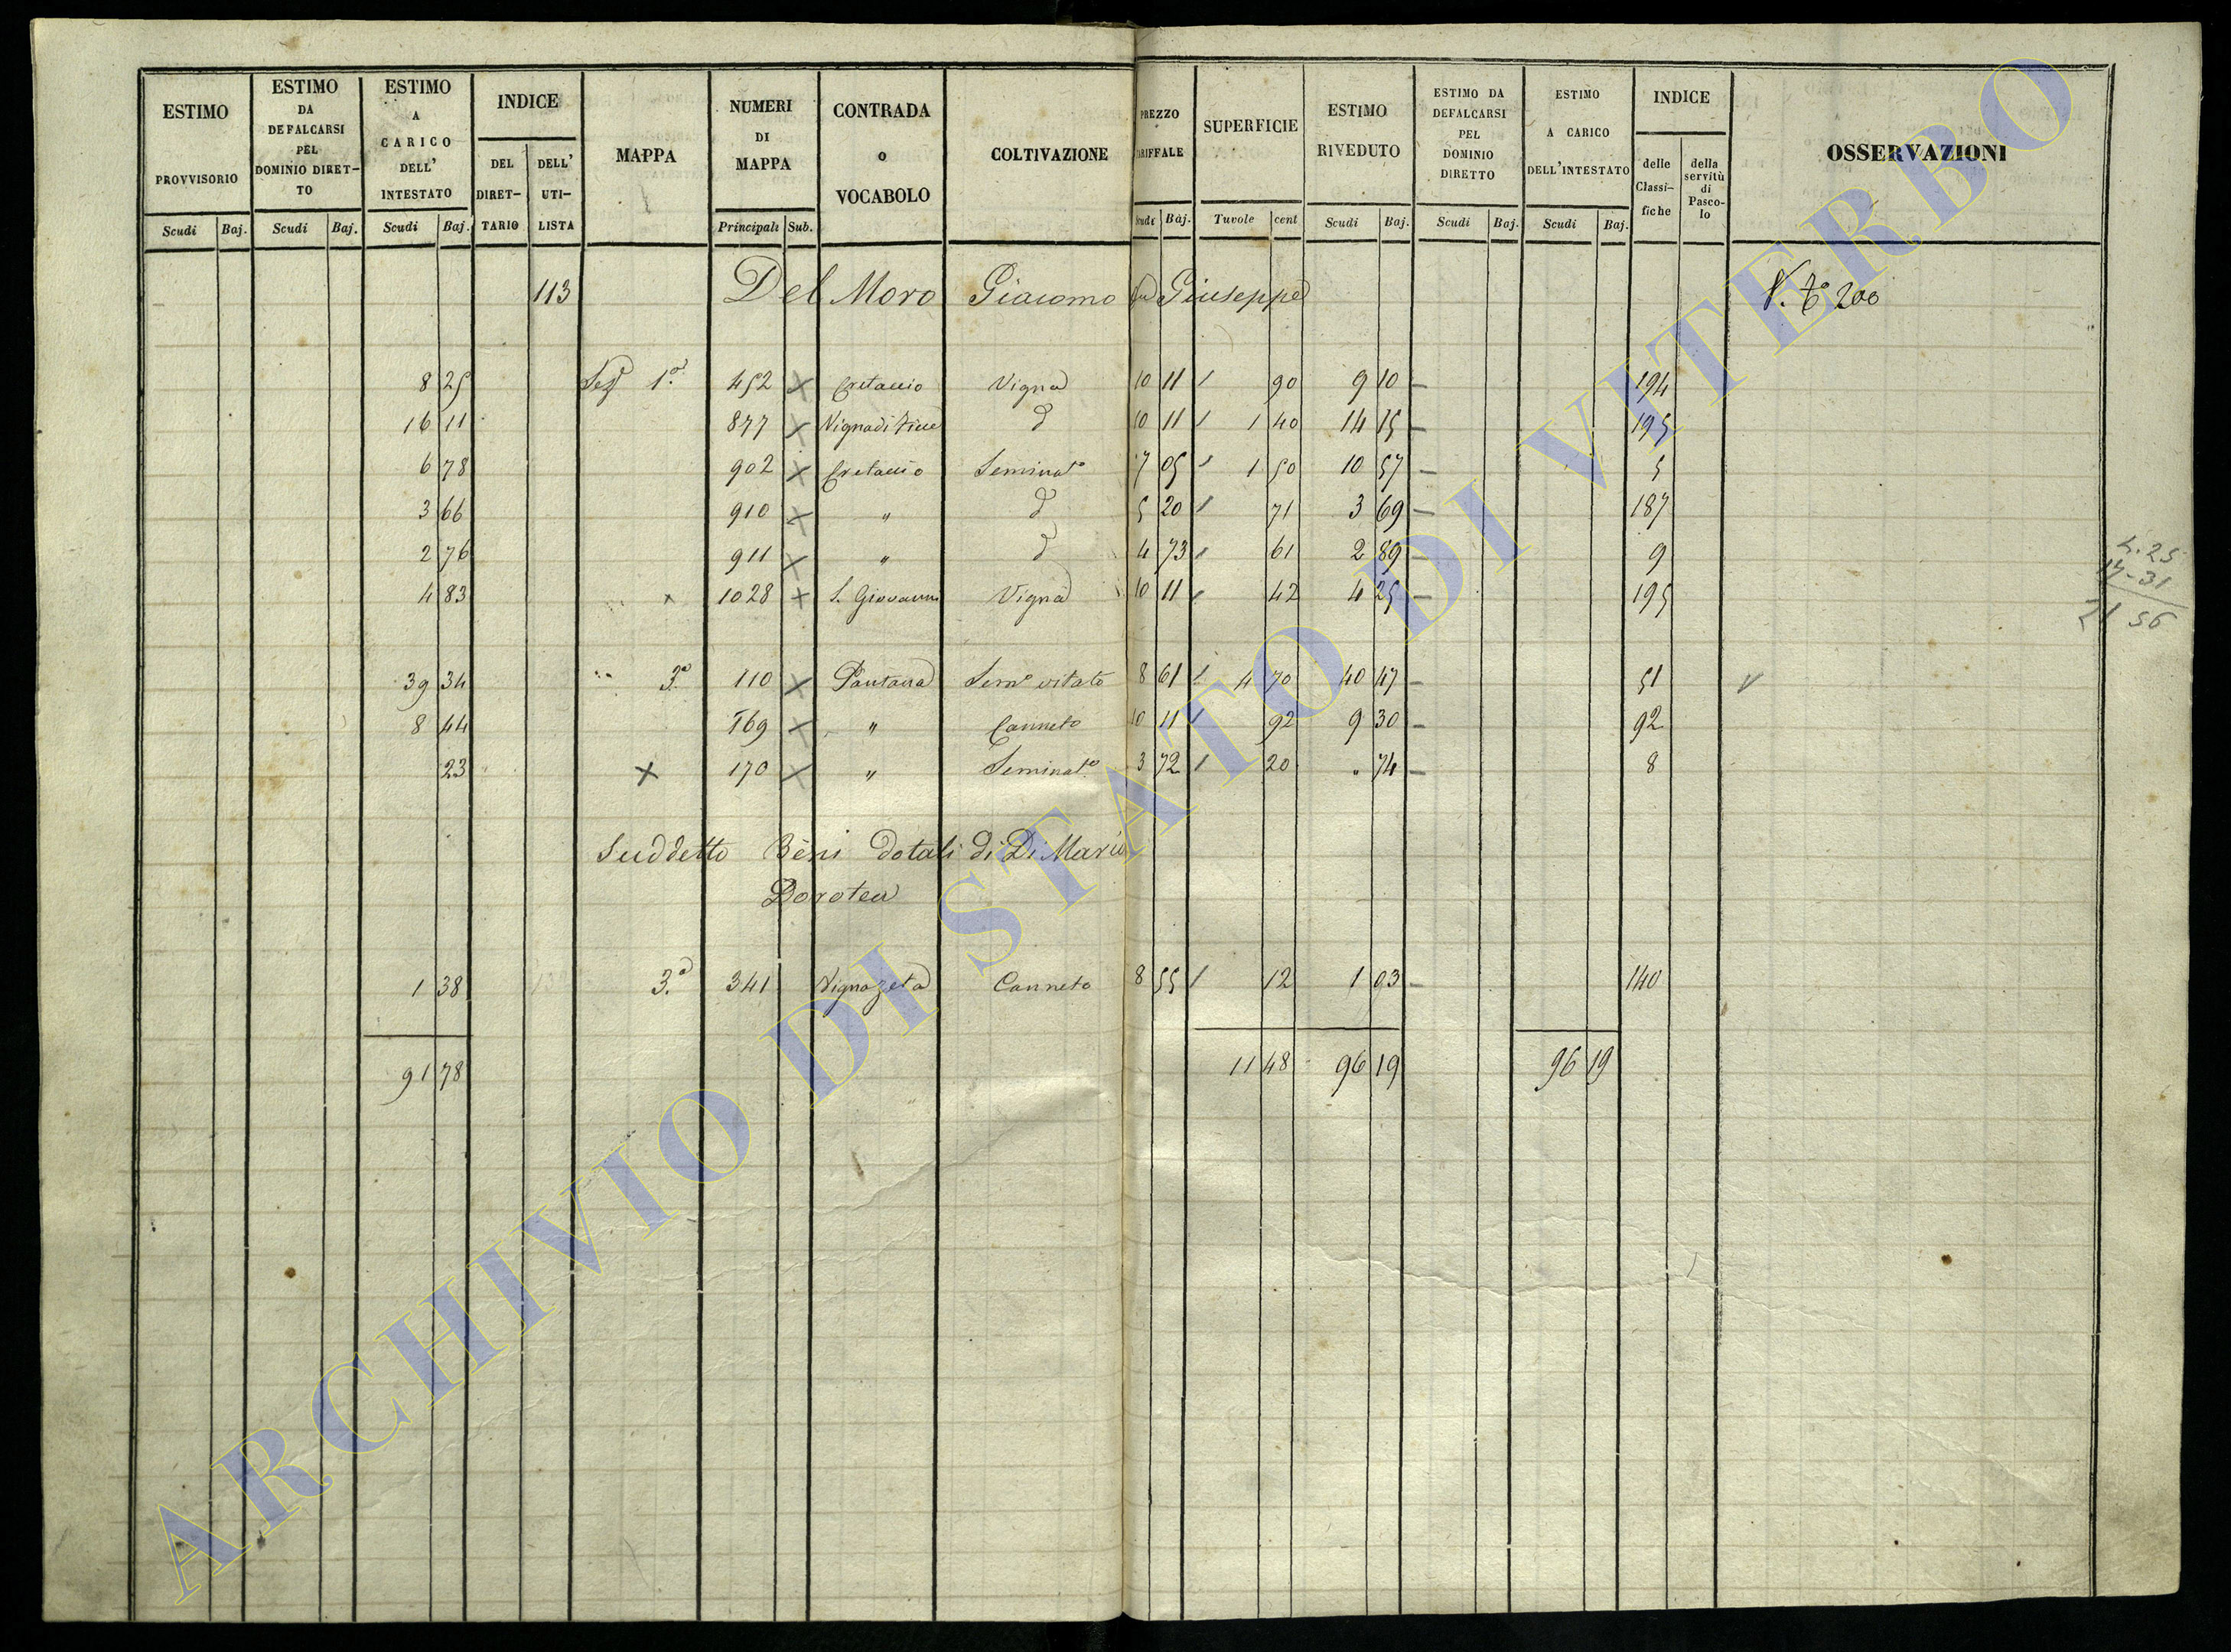 ESTIMO PROVVISORIO Scudi Baj.
ESTIMO DA DEFALCARSI PEL DOMINIO DIRET-TO Scudi Baj.
ESTIMO A CARICO DELL' INTESTATO Scudi Baj.
INDICE DEL DIRET-TARIO DELL' UTI-LISTA
MAPPA
NUMERI DI MAPPA Principali Sub.
CONTRADA o VOCABOLO
COLTIVAZIONE
PREZZO TARIFFALE Scudi Baj.
SUPERFICIE Tavole cent
ESTIMO RIVEDUTO Scudi Baj.
ESTIMO DA DEFALCARSI PEL DOMINIO DIRETTO Scudi Baj.
ESTIMO A CARICO DELL'INTESTATO Scudi Baj.
INDICE delle Classi-fiche della servitù di Pasco-lo
OSSERVAZIONI
113 Del Moro Giacomo fu Giuseppe V. to 200
8 25 Seze 1.a 452 X Cretaccio Vigna 10 11 / 90 9 10 — 194
16 11 877 X Vigna di Fiue d 10 11 / 1 40 14 15 — 195
6 78 902 X Cretaccio Seminato 7 05 / 1 50 10 57 — 5
3 66 910 X " d 5 20 / 71 3 69 — 187
2 76 911 X " d 4 73 / 61 2 89 — 9
4 83 x 1028 X S. Giovanni Vigna 10 11 / 42 4 25 — 195
4.25
17-31
21 56
39 34 " 3.a 110 X Pantana Semo vitato 8 61 / 4 70 40 47 — 51 v
8 44 169 X " Canneto 10 11 / 92 9 30 — 92
23 X 170 X " Seminato 3 72 / 20 " 74 — 8
Suddetto Beni dotali di Di Mario
Dorotea
1 38 3.a 341 Vignazeta Canneto 8 55 / 12 1 03 — 140
91 78 11 48 96 19 96 19
ARCHIVIO DI STATO DI VITERBO